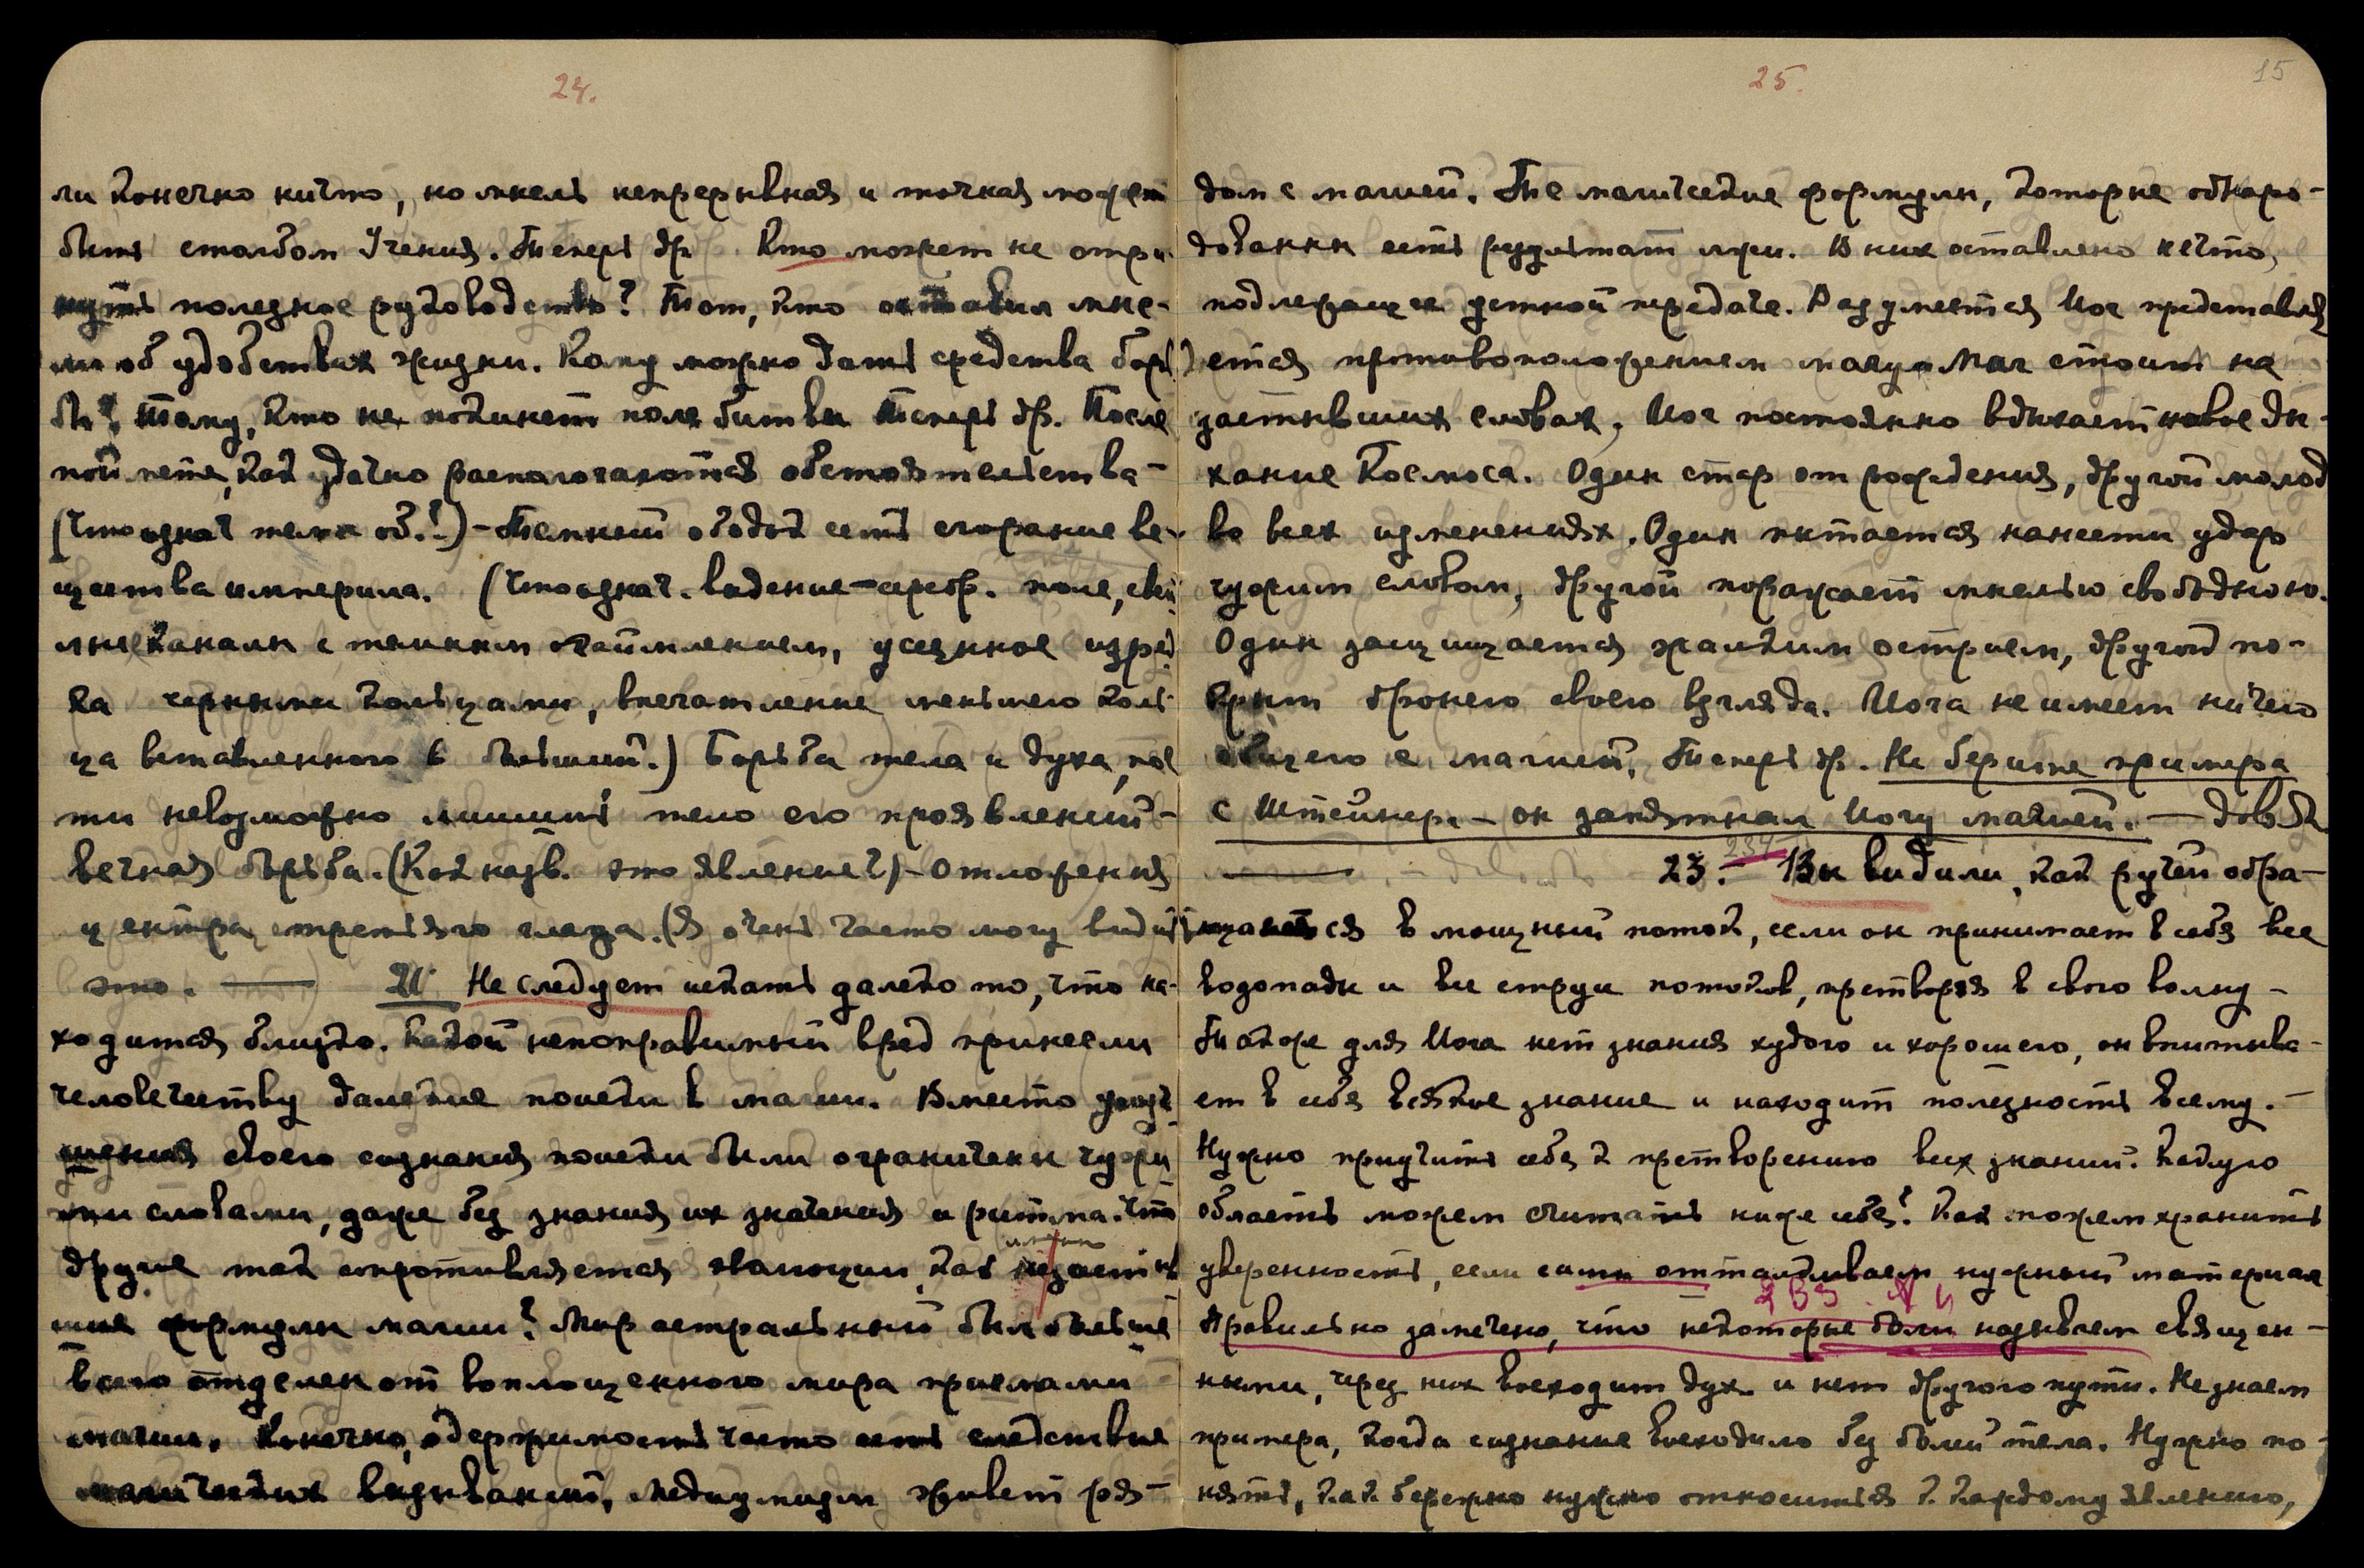 24.
ли конечно ничто, но мысль непрерывная и точная может
быть столбом Учения. Теперь др. Кто может не отри-
нуть полезное руководство? Тот, кто оставил мыс-
ли об удобствах жизни. Кому можно дать средства борь
бы? Тому, кто не покинет поле битвы. Теперь др. После
поймете, как удачно располагаются обстоятельства –
(Что означ темн об.?) – Темный ободок есть сгорание ве-
щества империла. (Что означ. видение – серебр. поле,
каналы с темным окаймлением, усеянное изред
ка черными кольцами, впечатление меньшего коль
ца вставленного в больший.) Борьба тела и духа, поч
ти невозможно лишить тело его проявлений –
вечная борьба. (Как назв. это явление?) – Отложения
центра третьего глаза. (Я очень часто могу видеть
это. — 21. Не следует искать далеко то, что на-
ходится близко. Какой непоправимый вред принесли
человечеству далекие поиски в магии. Вместо улуч
шения своего сознания поиски были ограничены чужи
ми словами, даже без знания их значения и ритма. Что
другие так сопротивляется эволюции, как не застыв
шие формулы магии? Мир астральный был больше
всего отделен от воплощенного мира приемами
магии. Конечно, одержимость часто есть следствие
магических вызываний, медиумизм живет ря-
25.
15
дом с магией. Те магические формулы, которые обнаро-
дованны есть результат лжи. В них оставлено нечто,
подлежащее устной передаче. Разумеется Йог представля
ется противоположением магу. Маг стоит на
застывших словах, Йог постоянно вдыхает новое ды-
хание Космоса. Один стар от рождения, другой молод
во всех изменениях. Один пытается нанести удар
чужим словом, другой поражает мыслью свободною.
Один защищается жалким острием, другой по-
крыт бронею своего взгляда. Йога не имеет ничего
общего с магией. Теперь др. Не берите примера
с Штейнера – он запятнал Йогу магией. – Довол.
— 234 23. – Вы видели, как ручей обра-
щается в мощный поток, если он принимает в себя все
водопады и все струи потоков, претворяя в свою волну –
Также для Йога нет знания худого и хорошего, он впитыва-
ет в себя всякое знание и находит полезность всему. –
Нужно приучить себя к претворению всех знаний. Какую
область можем считать ниже себя? Как можем хранить
уверенность, если сами отталкиваем нужный материал
Правильно замечено, что некоторые боли называем священ-
ными, через них восходит дух и нет другого пути. Не знаем
примера, когда сознание восходило без болей тела. Нужно по-
нять, как бережно нужно относиться к каждому явлению,